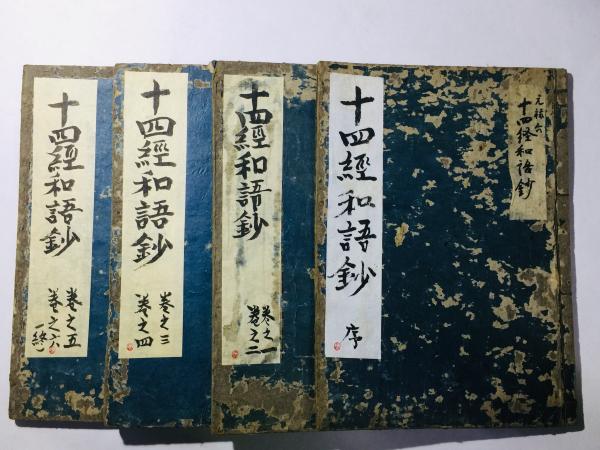 十四經和語鈔
序
元禄六
十四経和語鈔
十四經和語鈔
巻之一
巻之二
十四經和語鈔
巻之三
巻之四
十四經和語鈔
巻之五
巻之六
終